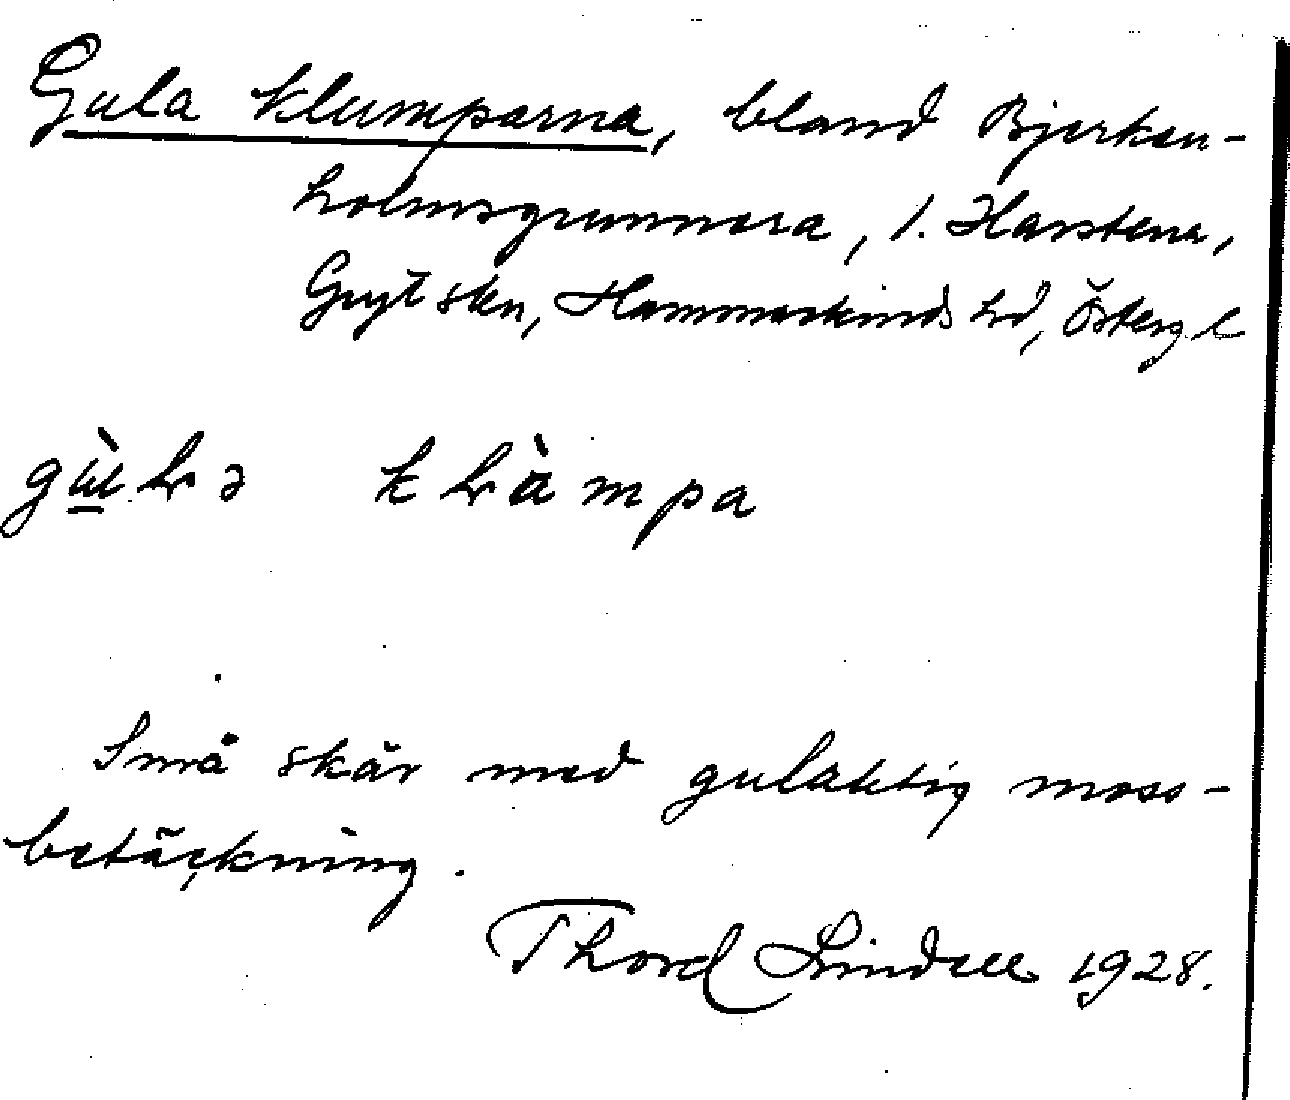 Gula klumparna, bland Bjerken-
holmsgrunnera, 1. Harstena,
Gryt skn, Hammarkinds hd, Östergl
Små skär med gulaktig moss-
betäckning.
Thord Lindell 1928.